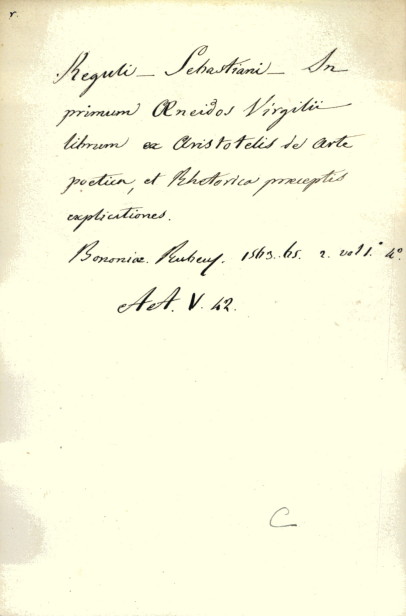 r.
Reguli – Sebastiani – In
primum Æneidos Virgilii
librum ex Aristotelis de Arte
poetica, et Rhetorica præceptis
explicationes.
Bononiæ. 1563.65. 2. vol 1.° 4.°
AA. V. 42.
C